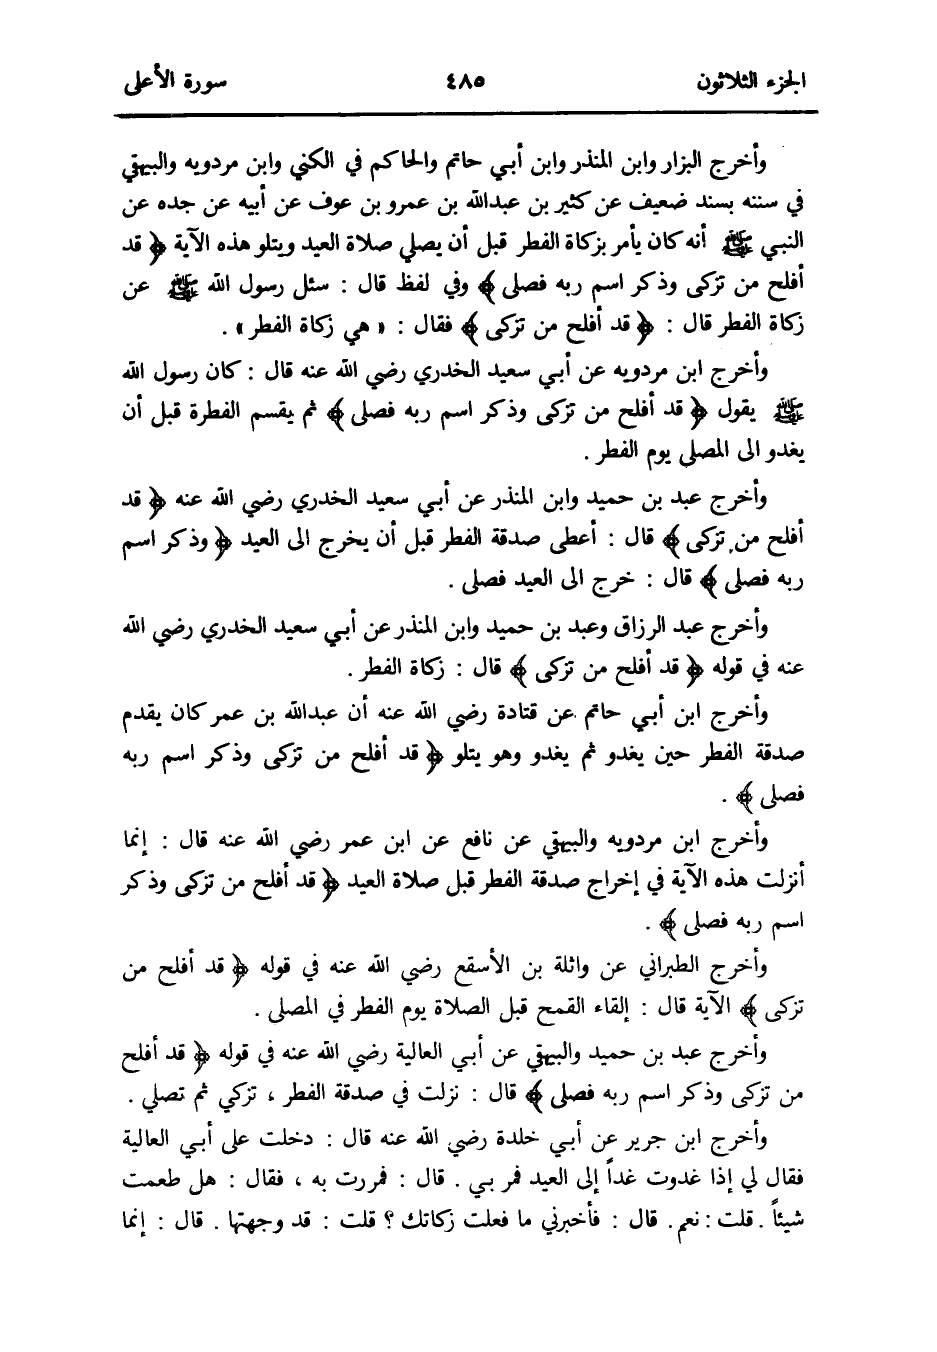 الجزء الثلاثون ٤٨٥ سورة الأعلى
وأخرج البزار وابن المنذر وابن أبي حاتم والحاكم في الكني وابن مردويه والبيهقي
في سننه بسند ضعيف عن كثير بن عبدالله بن عمرو بن عوف عن أبيه عن جده عن
النبي ﷺ أنه كان يأمر بزكاة الفطر قبل أن يصلي صلاة العيد ويتلو هذه الآية ﴿ قد
أفلح من تزكى وذكر اسم ربه فصلى ﴾ وفي لفظ قال : سئل رسول الله ﷺ عن
زكاة الفطر قال : ﴿ قد أفلح من تزكى ﴾ فقال : « هي زكاة الفطر » .
وأخرج ابن مردويه عن أبي سعيد الخدري رضي الله عنه قال : كان رسول الله
ﷺ يقول ﴿ قد أفلح من تزكى وذكر اسم ربه فصلى ﴾ ثم يقسم الفطرة قبل أن
يغدو الى المصلى يوم الفطر .
وأخرج عبد بن حميد وابن المنذر عن أبي سعيد الخدري رضي الله عنه ﴿ قد
أفلح من تزكى ﴾ قال : أعطى صدقة الفطر قبل أن يخرج الى العيد ﴿ وذكر اسم
ربه فصلى ﴾ قال : خرج الى العيد فصلى .
وأخرج عبد الرزاق وعبد بن حميد وابن المنذر عن أبي سعيد الخدري رضي الله
عنه في قوله ﴿ قد أفلح من تزكى ﴾ قال : زكاة الفطر .
وأخرج ابن أبي حاتم عن قتادة رضي الله عنه أن عبدالله بن عمر كان يقدم
صدقة الفطر حين يغدو ثم يغدو وهو يتلو ﴿ قد أفلح من تزكى وذكر اسم ربه
فصلى ﴾ .
وأخرج ابن مردويه والبيهقي عن نافع عن ابن عمر رضي الله عنه قال : إنما
أنزلت هذه الآية في إخراج صدقة الفطر قبل صلاة العيد ﴿ قد أفلح من تزكى وذكر
اسم ربه فصلى ﴾ .
وأخرج الطبراني عن واثلة بن الأسقع رضي الله عنه في قوله ﴿ قد أفلح من
تزكى ﴾ الآية قال : إلقاء القمح قبل الصلاة يوم الفطر في المصلى .
وأخرج عبد بن حميد والبيهقي عن أبي العالية رضي الله عنه في قوله ﴿ قد أفلح
من تزكى وذكر اسم ربه فصلى ﴾ قال : نزلت في صدقة الفطر ، تزكي ثم تصلي .
وأخرج ابن جرير عن أبي خلدة رضي الله عنه قال : دخلت على أبي العالية
فقال لي إذا غدوت غداً إلى العيد فمر بي . قال : فمررت به ، فقال : هل طعمت
شيئاً . قلت : نعم . قال : فأخبرني ما فعلت زكاتك ؟ قلت : قد وجهتها . قال : إنما